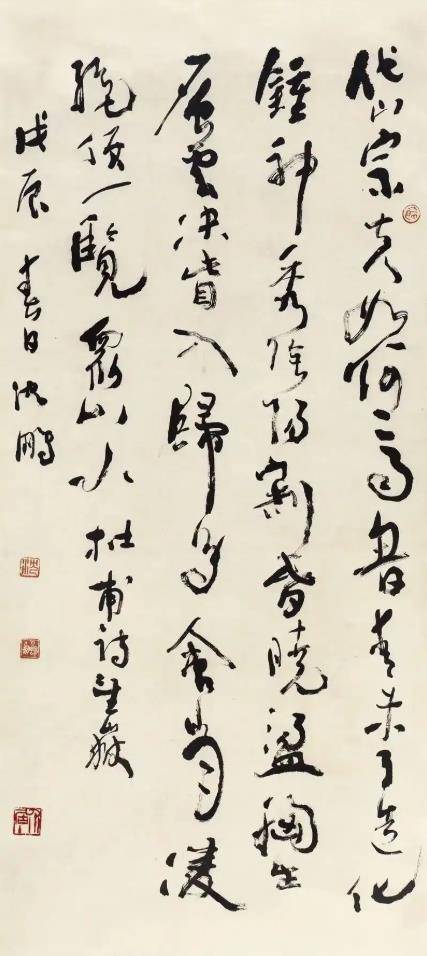 岱宗夫如何齊魯青未了造化
鍾神秀陰陽割昏曉盪胸生
層雲決眥入歸鳥會當凌
絕頂一覽衆山小 杜甫詩望嶽
戊辰春日沈鵬